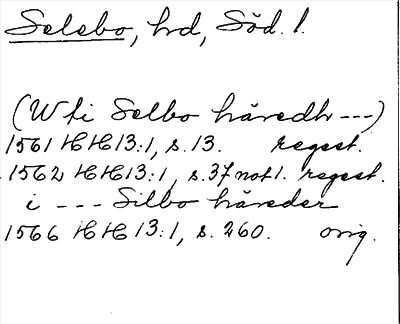 Selebo, hd, Söd. l.
(W ti Selbo häredh ---)
1561 HH 13:1, s. 13. regest.
1562 HH 13:1, s. 37 not 1. regest.
i --- Silbo häreder
1566 HH 13:1, s. 260. orig.